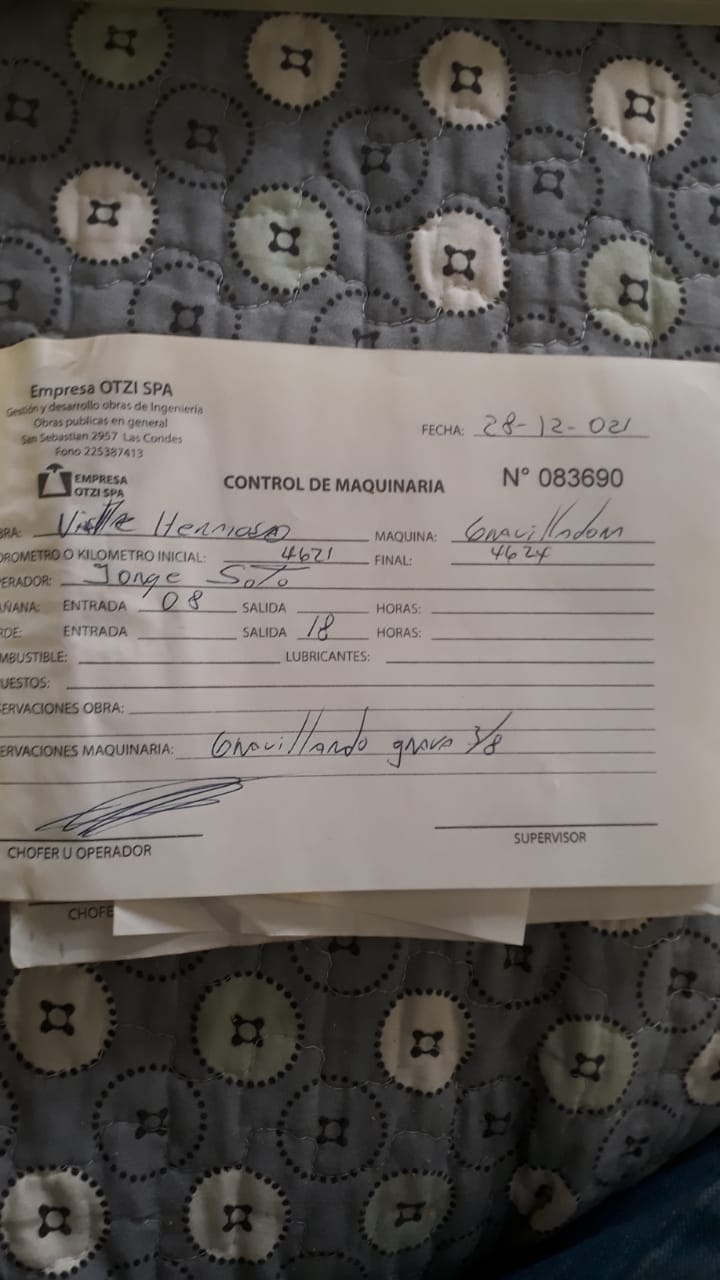 Empresa OTZI SPA
Gestión y desarrollo obras de Ingenieria
Obras publicas en general
San Sebastian 2957 Las Condes
Fono 225387413
FECHA: 28-12-021
EMPRESA
OTZI SPA
CONTROL DE MAQUINARIA
N° 083690
BRA: Vista Hermosa MAQUINA: Gravilladora
OROMETRO O KILOMETRO INICIAL: 4621 FINAL: 4624
ERADOR: Jorge Soto
AÑANA: ENTRADA 08 SALIDA HORAS:
RDE: ENTRADA SALIDA 18 HORAS:
MBUSTIBLE: LUBRICANTES:
UESTOS:
SERVACIONES OBRA:
ERVACIONES MAQUINARIA: Gravillando grava 3/8
CHOFER U OPERADOR
SUPERVISOR
CHOFE